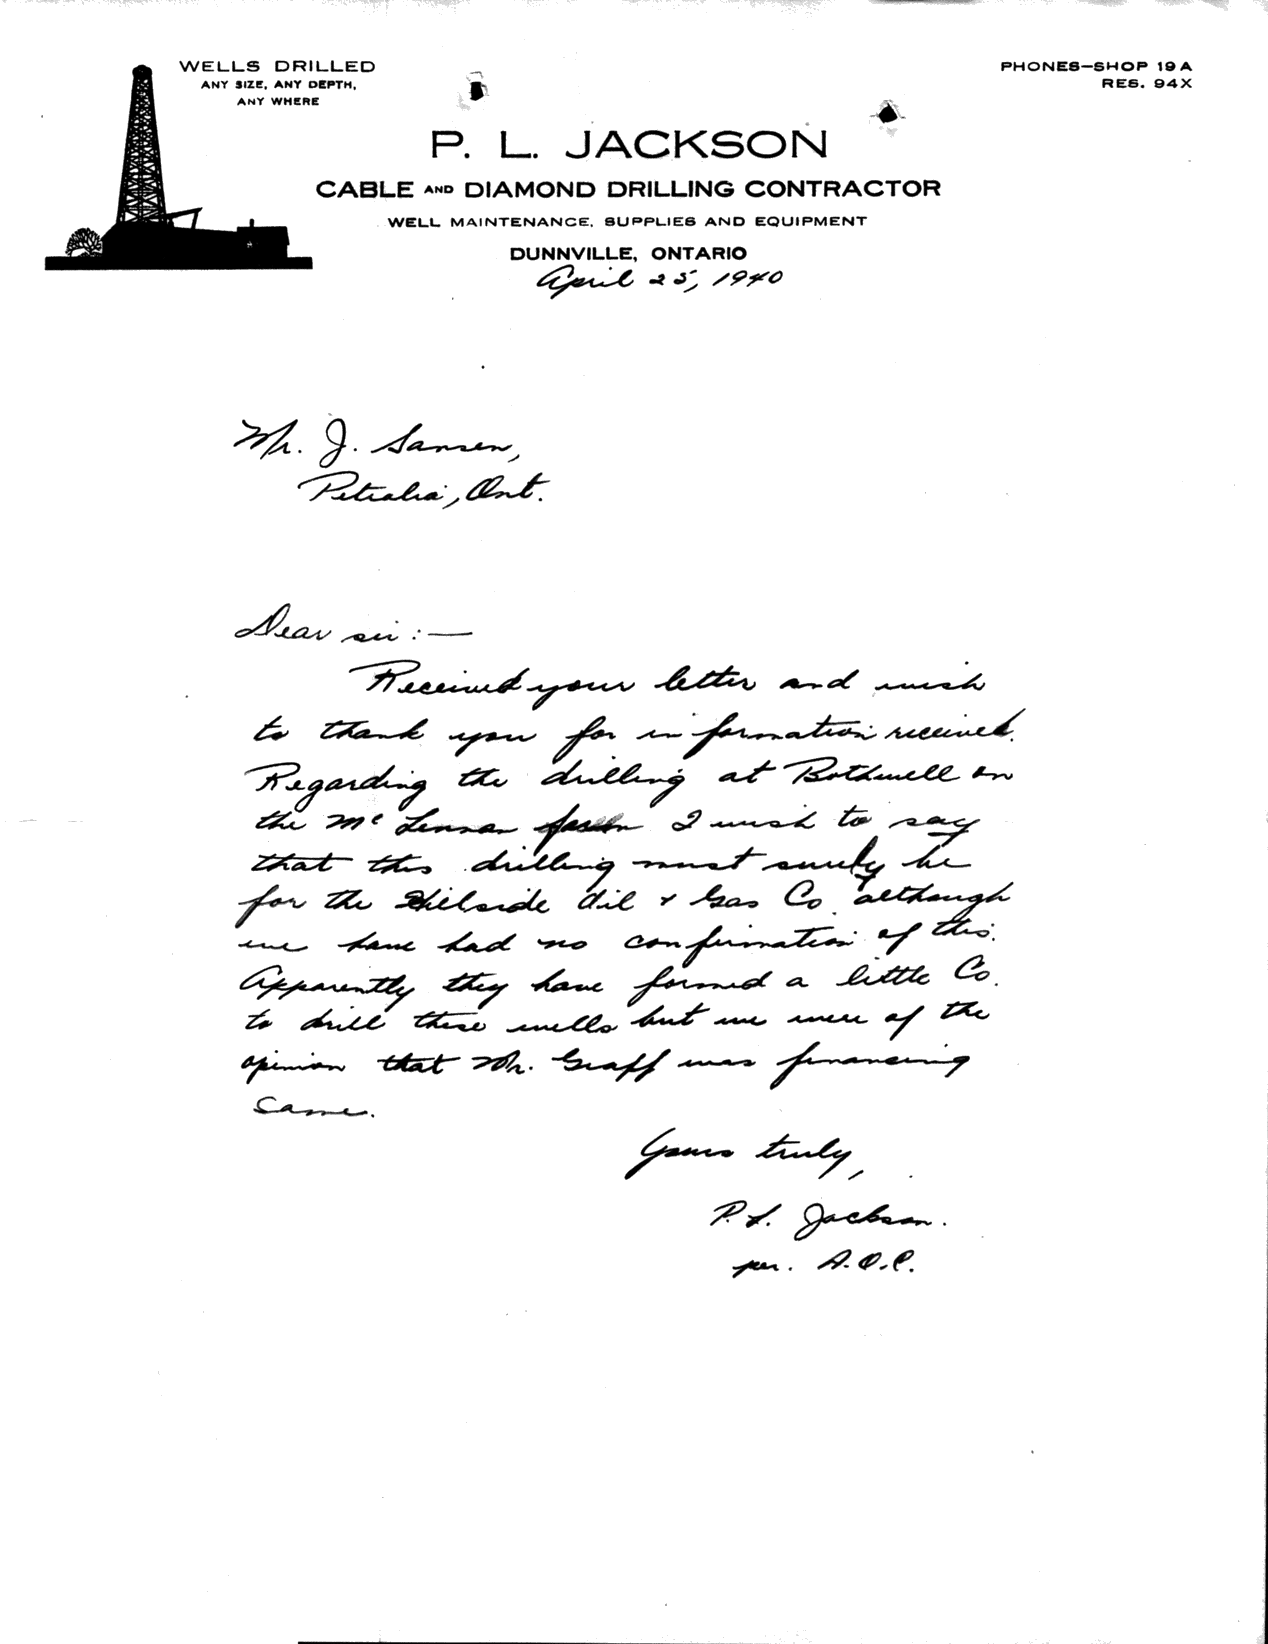 WELLS DRILLED
ANY SIZE, ANY DEPTH,
ANY WHERE
PHONES-SHOP 19A
RES. 94X
P. L. JACKSON
CABLE AND DIAMOND DRILLING CONTRACTOR
WELL MAINTENANCE, SUPPLIES AND EQUIPMENT
DUNNVILLE, ONTARIO
April 25, 1940
Mr. J. Sansen,
Petrolia, Ont.
Dear sir:—
Received your letter and wish
to thank you for information received.
Regarding the drilling at Bothwell on
the McLennan farm I wish to say
that this drilling must surely be
for the Hillside Oil & Gas Co. although
we have had no confirmation of this.
Apparently they have formed a little Co.
to drill these wells but we were of the
opinion that Mr. Graff was financing
same.
Yours truly,
P.L. Jackson.
per. A.O.C.